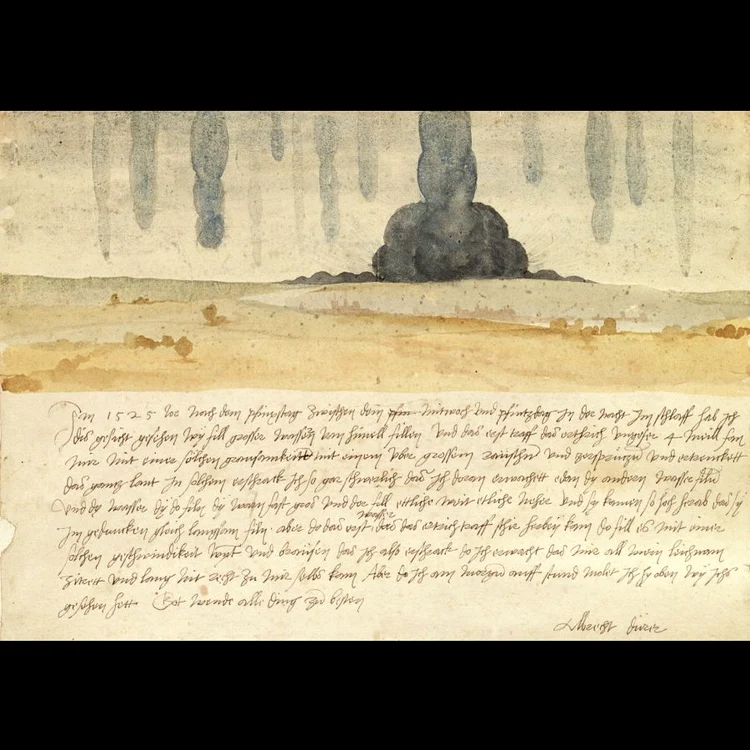 Im 1525 Jor nach dem pfinxstag zwischen dem Mitwoch und pfintzdag in der nacht im schlaff hab ich
dis gesicht gesehen wy fill grosser wassern vom himell fillen und das erst traff das erthrich ungefer 4 meill fan
mir mit einer solchen grausamkeit mit einem uber grossem raüschn und zersprützn und ertrenckett
das gantz lant In solchem erschrack ich so gar schwerlich das ich doran erwachett edan dy andern wasser filn
und dy wasser dy do filn dy warn fast gros und der fill ettliche weit etliche neher und sy kamen so hoch herab das sy
im gedancken gleich langsam filn. aber do das erst wasser das das ertrich traff schir herbey kam do fill es mit einer
solchen geschwindikeit wynt und braüsen das ich also erschrack do ich erwacht das mir all mein leichnam
zitrett und lang nit recht zu mir selbs kam Aber do ich am morgen auff stund molet ich hy oben wy ichs
gesehen hett. Got wende alle ding zu besten
Albrecht dürer